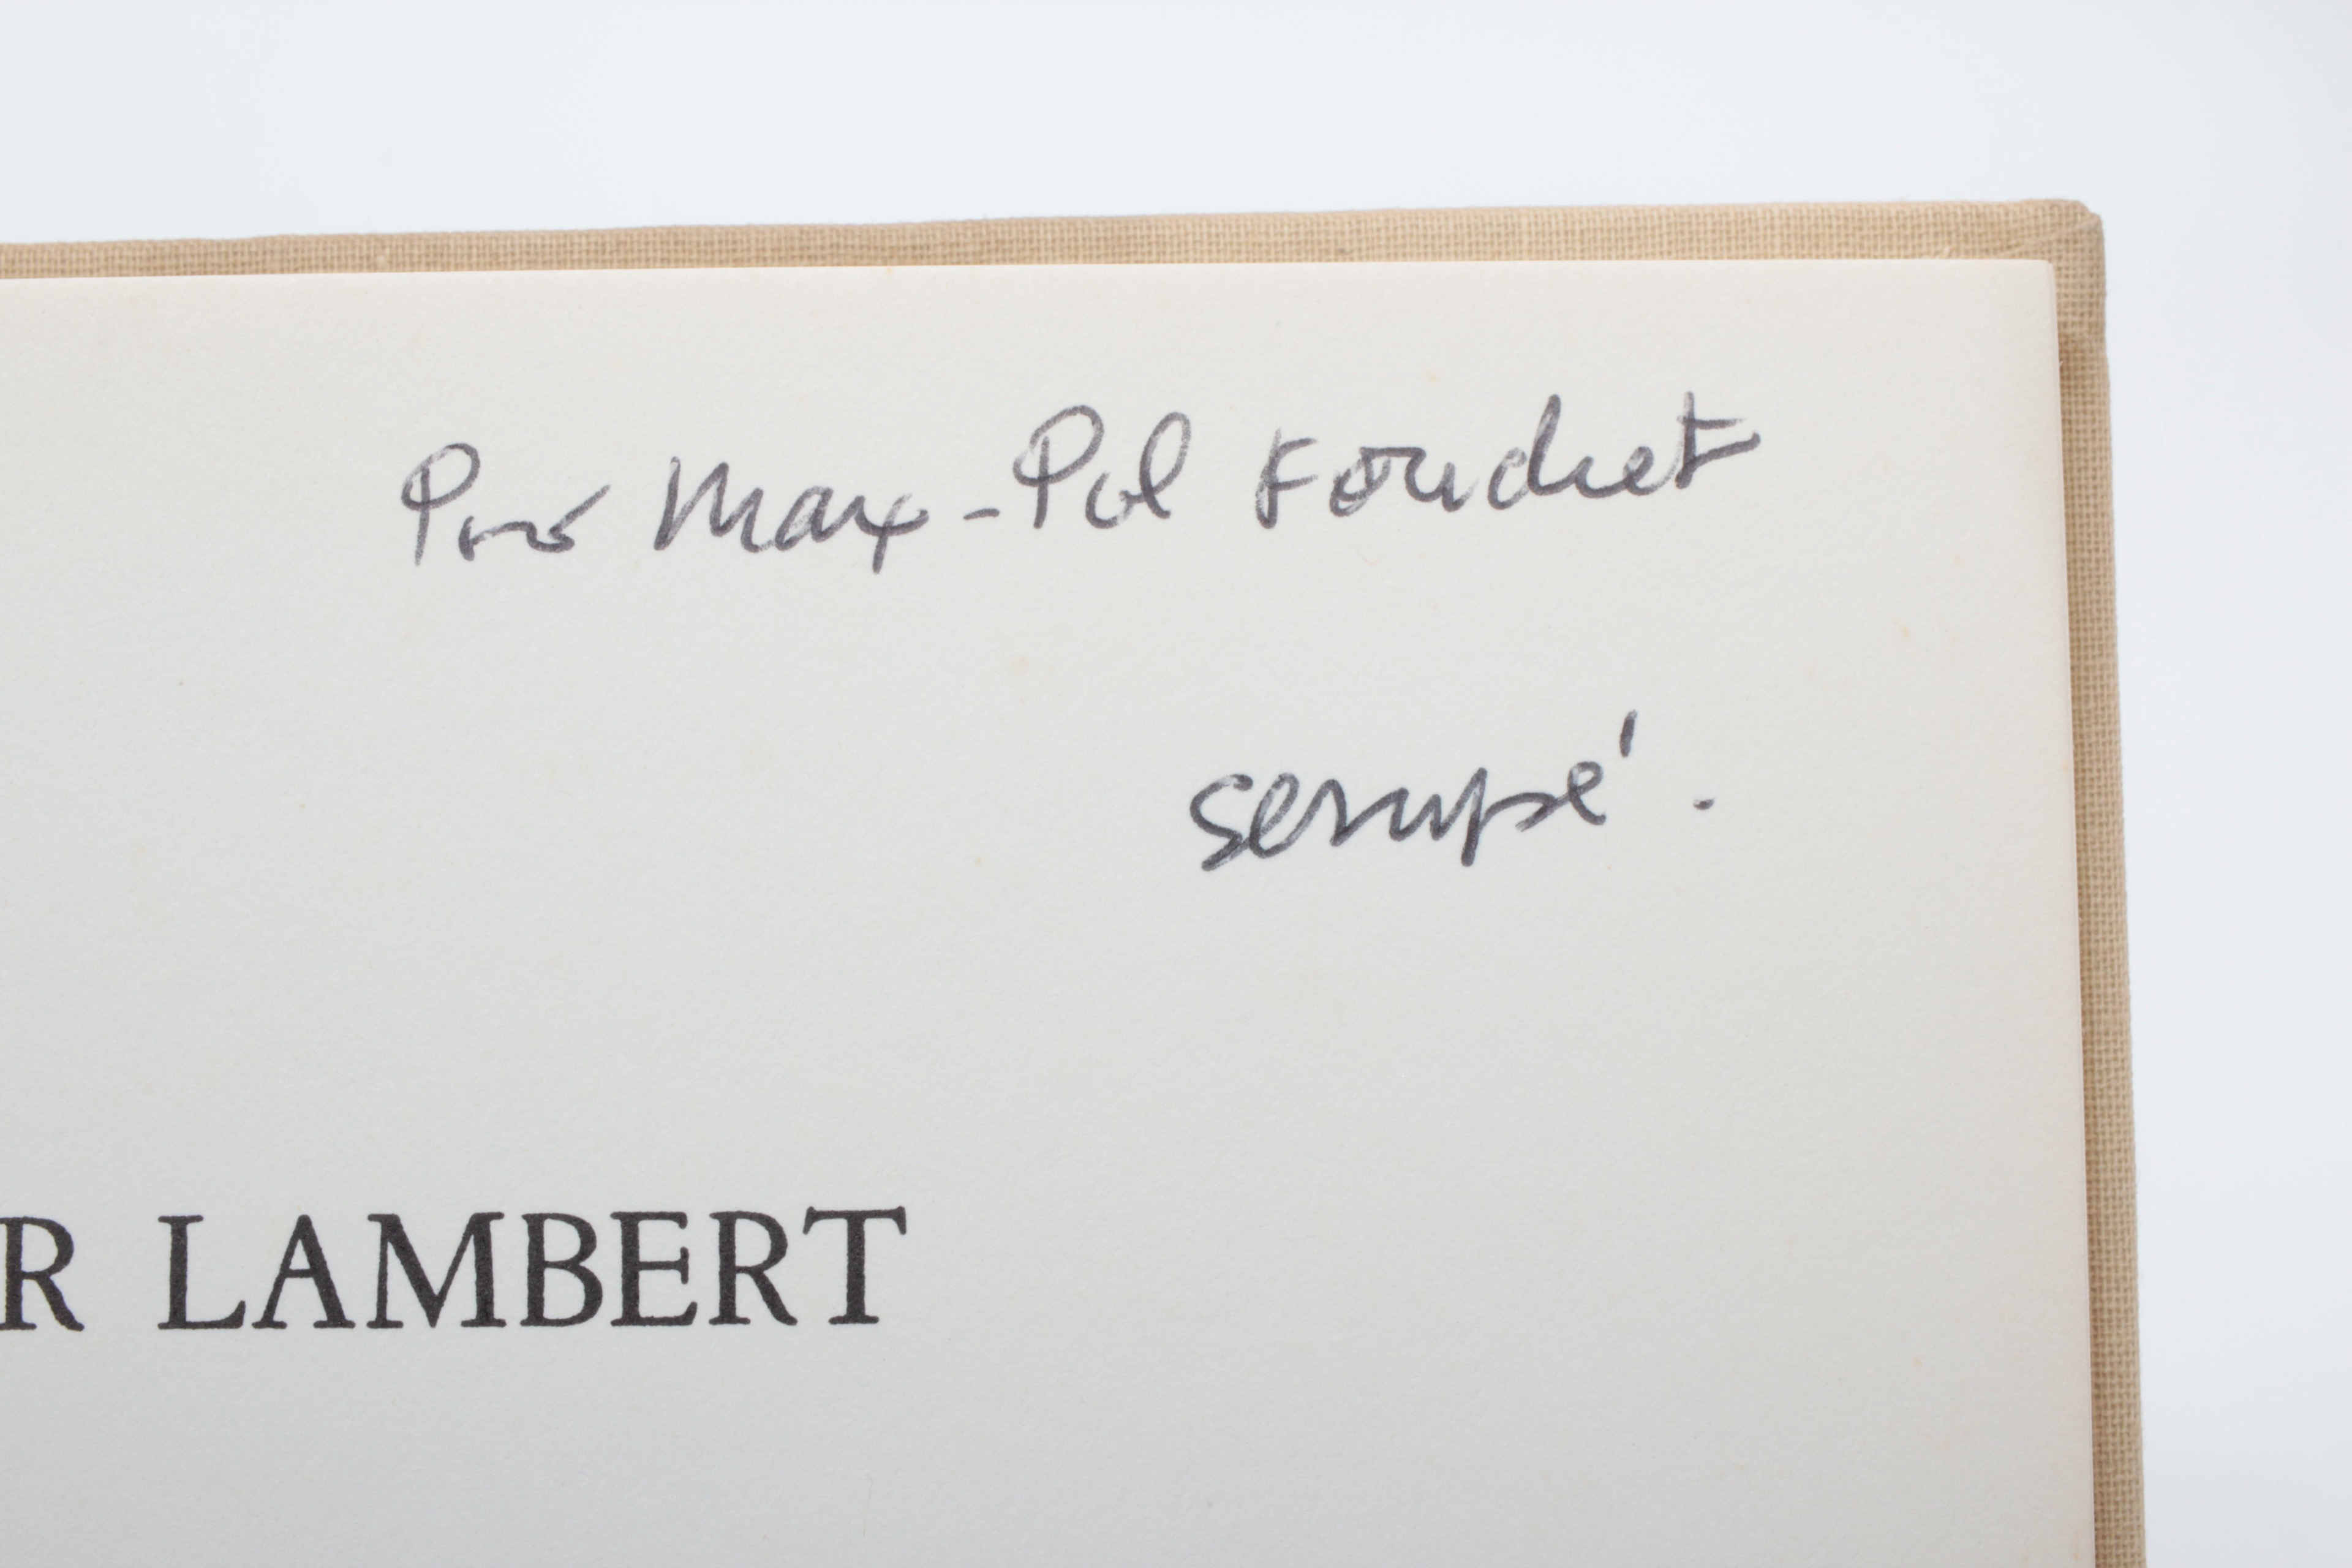 Pour Max-Pol Fouchet
Sempé.
R LAMBERT